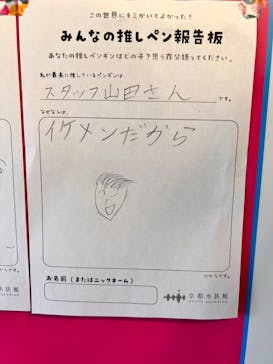 この世界にキミがいてよかった！
みんなの推しペン報告板
あなたの推しペンギンはどの子？思う存分語ってください。
私が最高に推しているペンギンは
スタッフ山田さん
です。
なぜならば、
イケメンだから
だからです。
お名前（またはニックネーム）
京都水族館
KYOTO AQUARIUM